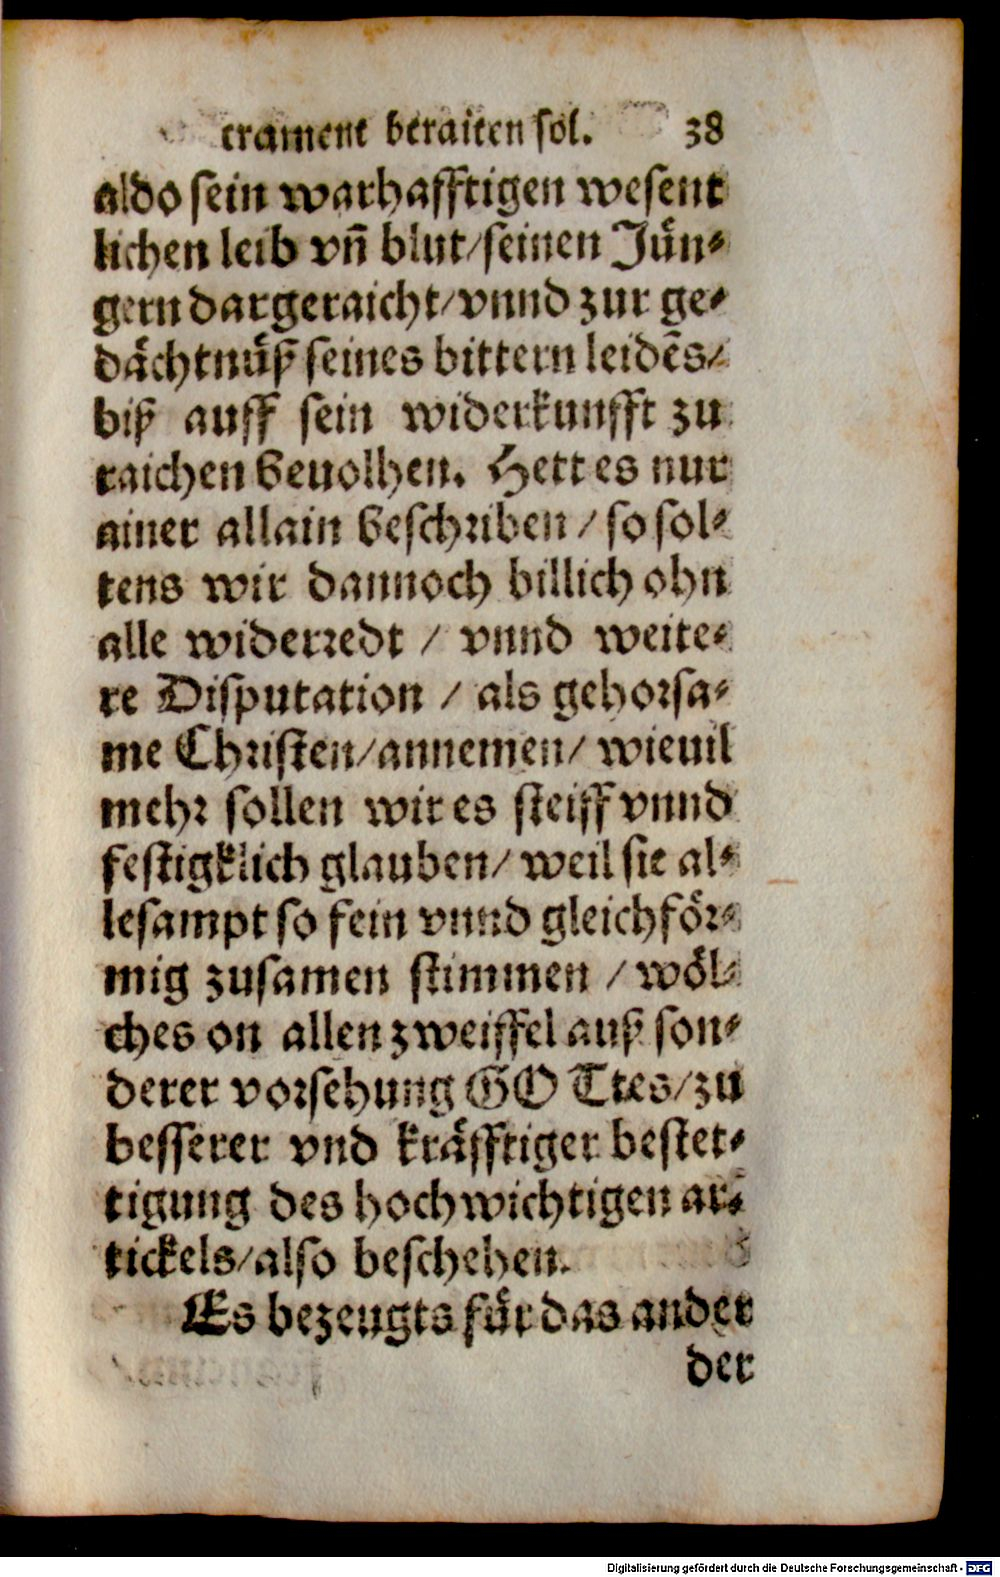 crament beraiten sol. 38
aldo sein warhafftigen wesent
lichen leib vñ blut/seinen Jün⸗
gern dargeraicht/vnnd zur ge⸗
dächtnüß seines bittern leidẽs/
biß auff sein widerkunfft zu
raichen beuolhen. Hett es nur
ainer allain beschriben / so sol⸗
tens wir dannoch billich ohn
alle widerredt / vnnd weite⸗
re Disputation / als gehorsa⸗
me Christen/annemen/ wieuil
mehr sollen wir es steiff vnnd
festigklich glauben/ weil sie al⸗
lesampt so fein vnnd gleichför⸗
mig zusamen stimmen / wöl⸗
ches on allen zweiffel auß son⸗
derer vorsehung GOTtes/zu
besserer vnd kräfftiger bestet⸗
tigung des hochwichtigen ar⸗
tickels/also beschehen.
Es bezeugts für das ander
der
Digitalisierung gefördert durch die Deutsche Forschungsgemeinschaft - DFG